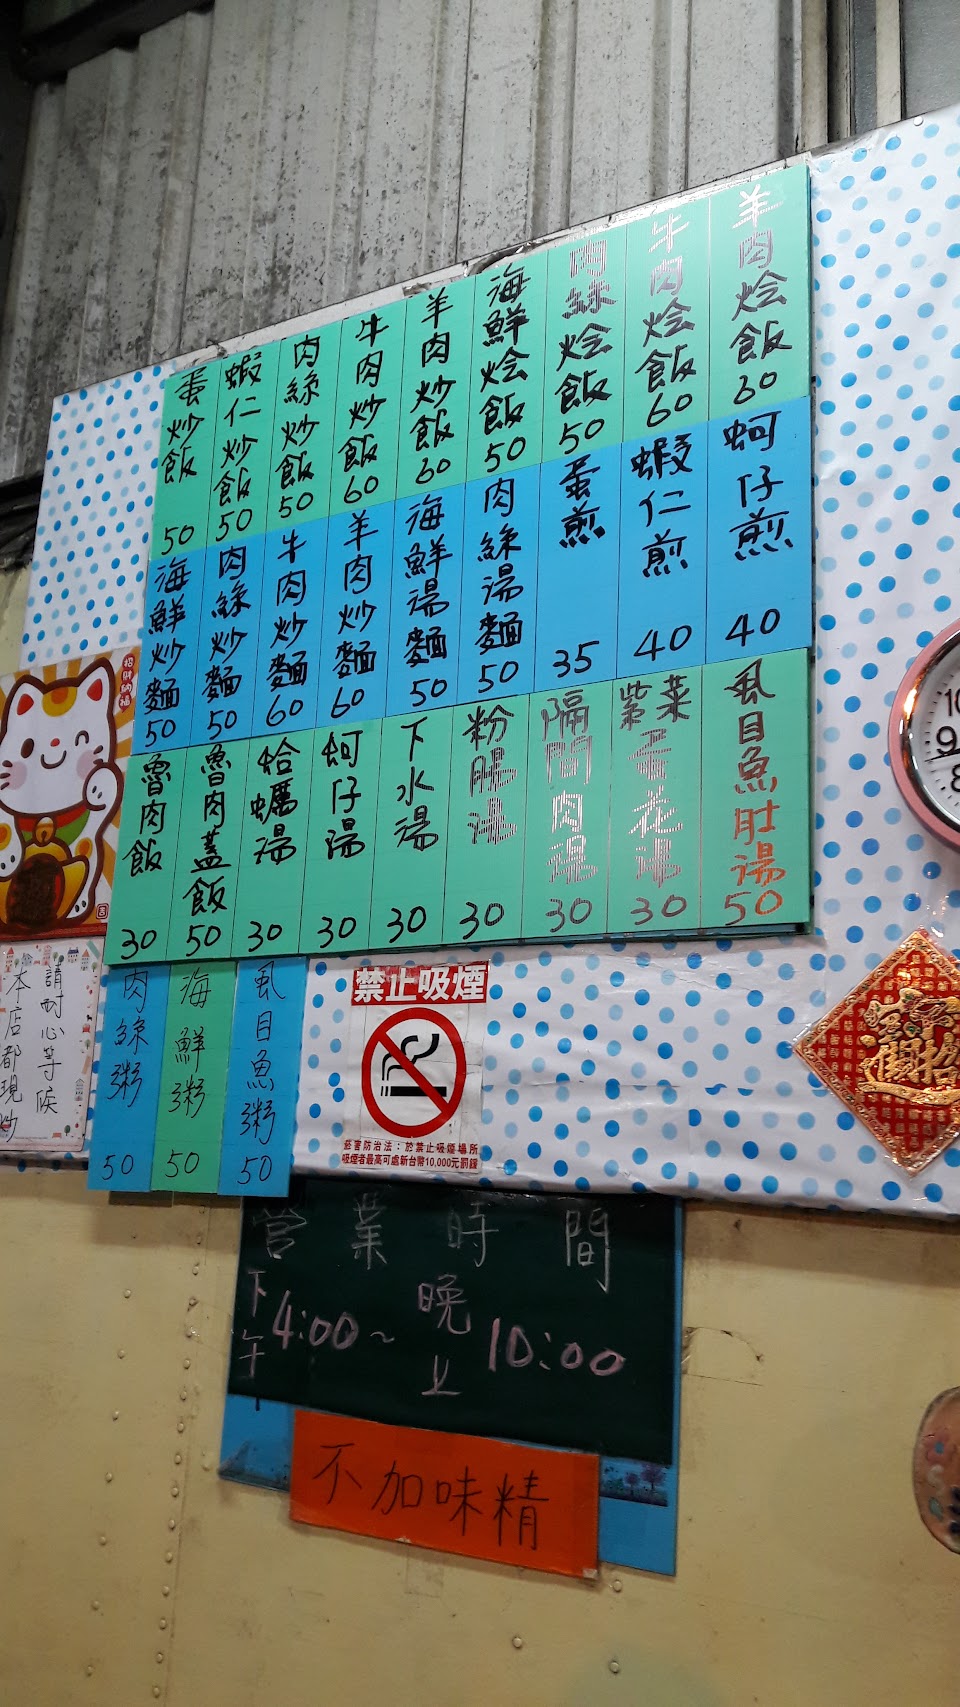 羊肉烩飯 60
牛肉烩飯 60
肉絲烩飯 50
海鮮烩飯 50
羊肉炒飯 60
牛肉炒飯 60
肉絲炒飯 50
蝦仁炒飯 50
蛋炒飯 50
蚵仔煎 40
蝦仁煎 40
蛋煎 35
肉絲湯麵 50
海鮮湯麵 50
羊肉炒麵 60
牛肉炒麵 60
肉絲炒麵 50
海鮮炒麵 50
虱目魚肚湯 50
紫菜蛋花湯 30
隔間肉湯 30
粉腸湯 30
下水湯 30
蚵仔湯 30
蛤蠣湯 30
魯肉蓋飯 50
魯肉飯 30
虱目魚粥 50
海鮮粥 50
肉絲粥 50
招財納福
請耐心等候
本店都現炒
禁止吸煙
菸害防治法：於禁止吸煙場所
吸煙者最高可處新台幣10,000元罰鍰
營業時間
下午4:00~晚上10:00
不加味精
10
9
8